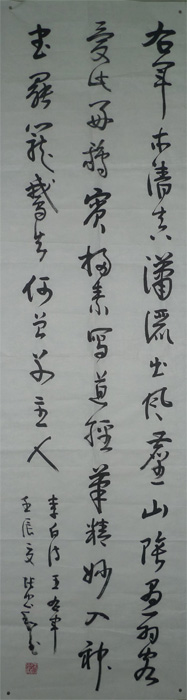 右軍本清真瀟灑出風塵山陰遇羽客
愛此好鵝賓掃素寫道經筆精妙入神
書罷籠鵝去何曾別主人
李白詩王右軍
壬辰夏